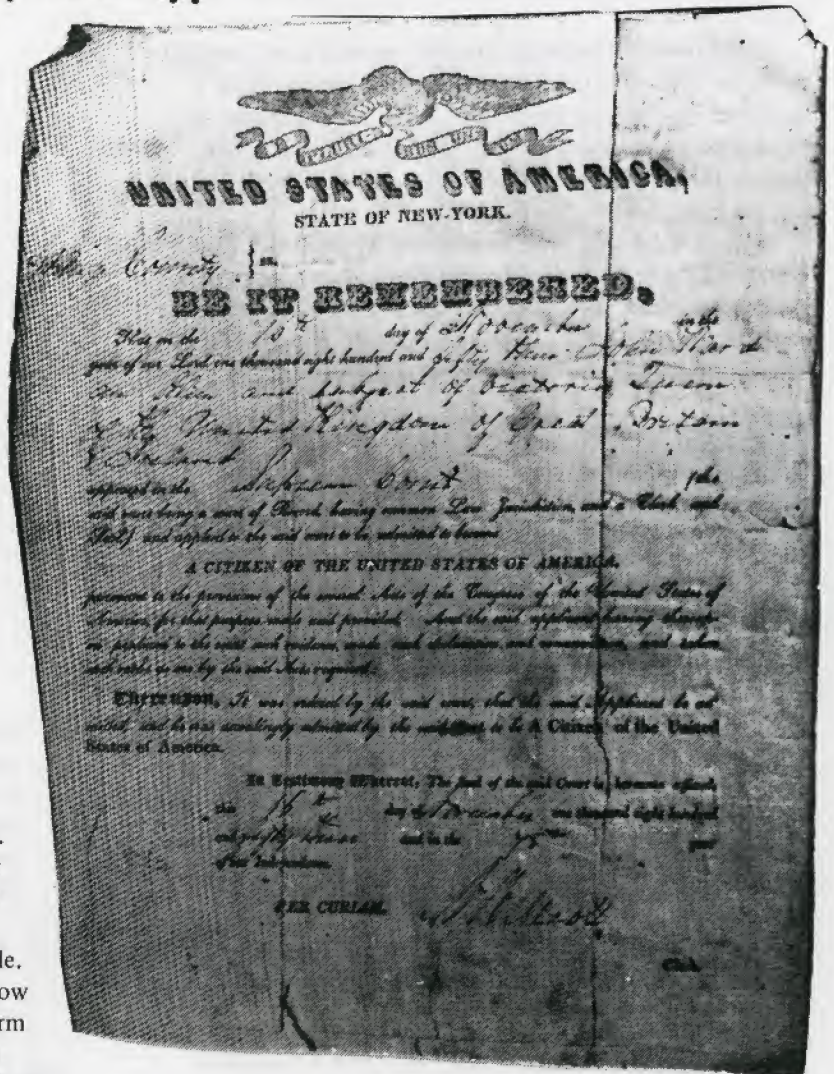 E PLURIBUS UNUM
UNITED STATES OF AMERICA,
STATE OF NEW-YORK.
County } ss.
BE IT REMEMBERED,
That on the day of November in the
year of our Lord one thousand eight hundred and fifty John Ward
an Alien and subject of Victoria Queen
of the United Kingdom of Great Britain
& Ireland
appeared in the Supreme Court (the
said court being a court of Record, having common Law Jurisdiction, and a Clerk and
Seal) and applied to the said court to be admitted to become
A CITIZEN OF THE UNITED STATES OF AMERICA,
pursuant to the provisions of the several Acts of the Congress of the United States of
America, for that purpose made and provided. And the said applicant having
to the said court such evidence, made such declaration and renunciation, and taken
such oaths as are by the said Acts required.
Thereupon, It was ordered by the said court, that the said Applicant be ad-
mitted, and he was accordingly admitted by the said court to be A Citizen of the United
States of America.
In Testimony Whereof, The Seal of the said Court is hereunto affixed,
this day of November one thousand eight hundred
and fifty and in the year
of our Independence.
PER CURIAM.
Clerk
le.
ow
rm